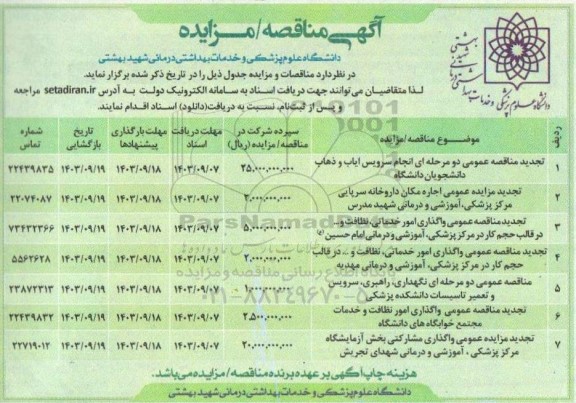 آگهی مناقصه/مزایده
دانشگاه علوم پزشکی و خدمات بهداشتی درمانی شهید بهشتی
در نظر دارد مناقصات و مزایده جدول ذیل را در تاریخ ذکر شده برگزار نماید.
لذا متقاضیان می توانند جهت دریافت اسناد به سامانه الکترونیک دولت به آدرس setadiran.ir مراجعه
و پس از ثبت‌نام، نسبت به دریافت(دانلود) اسناد اقدام نمایند.
ردیف موضوع مناقصه/مزایده سپرده شرکت در مناقصه/مزایده (ریال) مهلت دریافت اسناد مهلت بارگذاری پیشنهادها تاریخ بازگشایی شماره تماس
۱ تجدید مناقصه عمومی دو مرحله ای انجام سرویس ایاب و ذهاب دانشجویان دانشگاه ۲۵,۰۰۰,۰۰۰,۰۰۰ ۱۴۰۳/۰۹/۰۷ ۱۴۰۳/۰۹/۱۸ ۱۴۰۳/۰۹/۱۹ ۲۲۴۳۹۸۳۵
۲ تجدید مزایده عمومی اجاره مکان داروخانه سرپایی مرکز پزشکی، آموزشی و درمانی شهید مدرس ۲,۰۰۰,۰۰۰,۰۰۰ ۱۴۰۳/۰۹/۰۷ ۱۴۰۳/۰۹/۱۸ ۱۴۰۳/۰۹/۱۹ ۲۲۰۷۴۰۸۷
۳ تجدید مناقصه عمومی واگذاری امور خدماتی، نظافت و ... در قالب حجم کار در مرکز پزشکی، آموزشی و درمانی امام حسین (ع) ۵,۰۰۰,۰۰۰,۰۰۰ ۱۴۰۳/۰۹/۰۷ ۱۴۰۳/۰۹/۱۸ ۱۴۰۳/۰۹/۱۹ ۷۳۴۳۲۳۶۶
۴ تجدید مناقصه عمومی واگذاری امور خدماتی، نظافت و ... در قالب حجم کار در مرکز پزشکی، آموزشی و درمانی مهدیه ۲,۰۰۰,۰۰۰,۰۰۰ ۱۴۰۳/۰۹/۰۷ ۱۴۰۳/۰۹/۱۸ ۱۴۰۳/۰۹/۱۹ ۵۵۶۲۶۲۸
۵ مناقصه عمومی دو مرحله ای نگهداری، راهبری، سرویس و تعمیر تاسیسات دانشکده پزشکی ۱۴۰۳/۰۹/۰۷ ۱۴۰۳/۰۹/۱۸ ۱۴۰۳/۰۹/۱۹ ۲۳۸۷۲۳۱۳
۶ تجدید مناقصه عمومی واگذاری امور نظافت و خدمات مجتمع خوابگاه های دانشگاه ۲,۵۰۰,۰۰۰,۰۰۰ ۱۴۰۳/۰۹/۰۷ ۱۴۰۳/۰۹/۱۸ ۱۴۰۳/۰۹/۱۹ ۲۲۴۳۹۸۳۲
۷ تجدید مزایده عمومی واگذاری مشارکتی بخش آزمایشگاه مرکز پزشکی، آموزشی و درمانی شهدای تجریش ۲۰,۰۰۰,۰۰۰,۰۰۰ ۱۴۰۳/۰۹/۰۷ ۱۴۰۳/۰۹/۱۸ ۱۴۰۳/۰۹/۱۹ ۲۲۷۱۹۰۱۲
هزینه چاپ آگهی بر عهده برنده مناقصه/مزایده می‌باشد.
دانشگاه علوم پزشکی و خدمات بهداشتی درمانی شهید بهشتی
ParsNamad
پایگاه اطلاع رسانی مناقصه و مزایده
۰۲۱-۸۸۳۴۹۶۷۰-۵